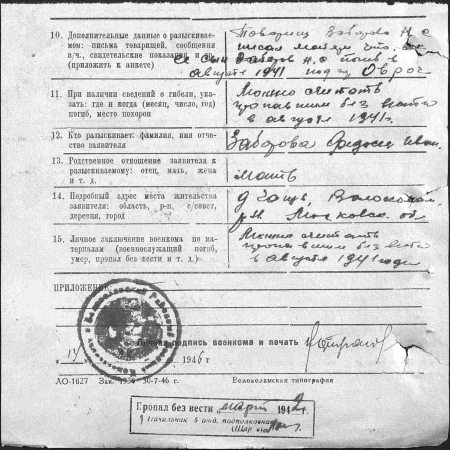 10. Дополнительные данные о разыскивае-
мом: письма товарищей, сообщения
в/ч., свидетельские показания и
(приложить к анкете)
Товарищ Заборова Н С
писал матери что
сын Заборов Н.С погиб в
августе 1941 под гор Овруч
11. При наличии сведений о гибели, ука-
зать: где и когда (месяц, число, год)
погиб, место похорон
Можно считать
пропавшим без вести
в августе 1941г.
12. Кто разыскивает: фамилия, имя отче-
ство заявителя
Заборова Федосья Иван.
13. Родственное отношение заявителя к
разыскиваемому: отец, мать, жена
и т. д.
Мать
14. Подробный адрес места жительства
заявителя: область, р-н, с/совет,
деревня, город
Волоколам.
р-н Московск. об
15. Личное заключение военкома по ма-
териалам (военнослужащий погиб,
умер, пропал без вести и т. д.)
Можно считать
пропавшим без вести
в августе 1941 года
ПРИЛОЖЕНИЕ
Личная подпись военкома и печать
1946 г
ЛО-1627 Зак. 1350 30-7-46 г. Волоколамская типография
Пропал без вести „март 1942г.
Начальник 5 отд. подполковник